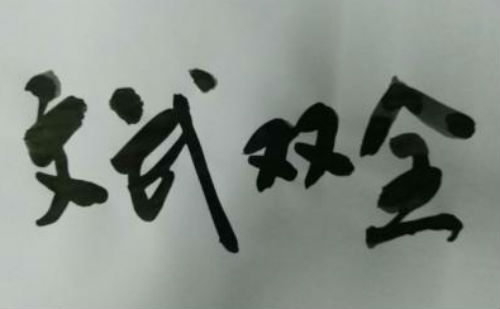 文武双全